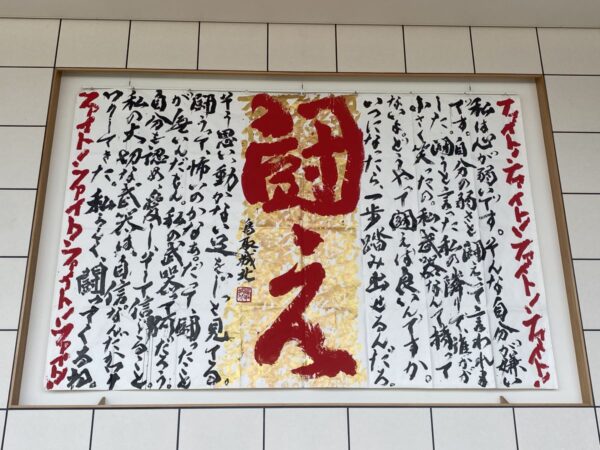 ファイト!ファイト!ファイト!ファイト!
私は心が弱いです。そんな自分が嫌い
です。自分の弱さと闘えって言われま
した。闘うと言った私の隣りで、誰かが
小さく笑ったの。私、武器なんて持って
ないよ。どうやって闘えば良いんですか。
いつになったら、一歩踏み出せるんだろ。
闘え
鳥取城北
そう思い、動かない足をじっと見てる。
闘うって怖いのかなあ。だって闘ったこと
が無いんだもん。私の武器って何だろう。
自分を認め、愛し、そして信じること。
私の大切な武器は、自信なんだ
私らしく、闘ってくるね。
ファイト!ファイト!ファイト!ファイト!